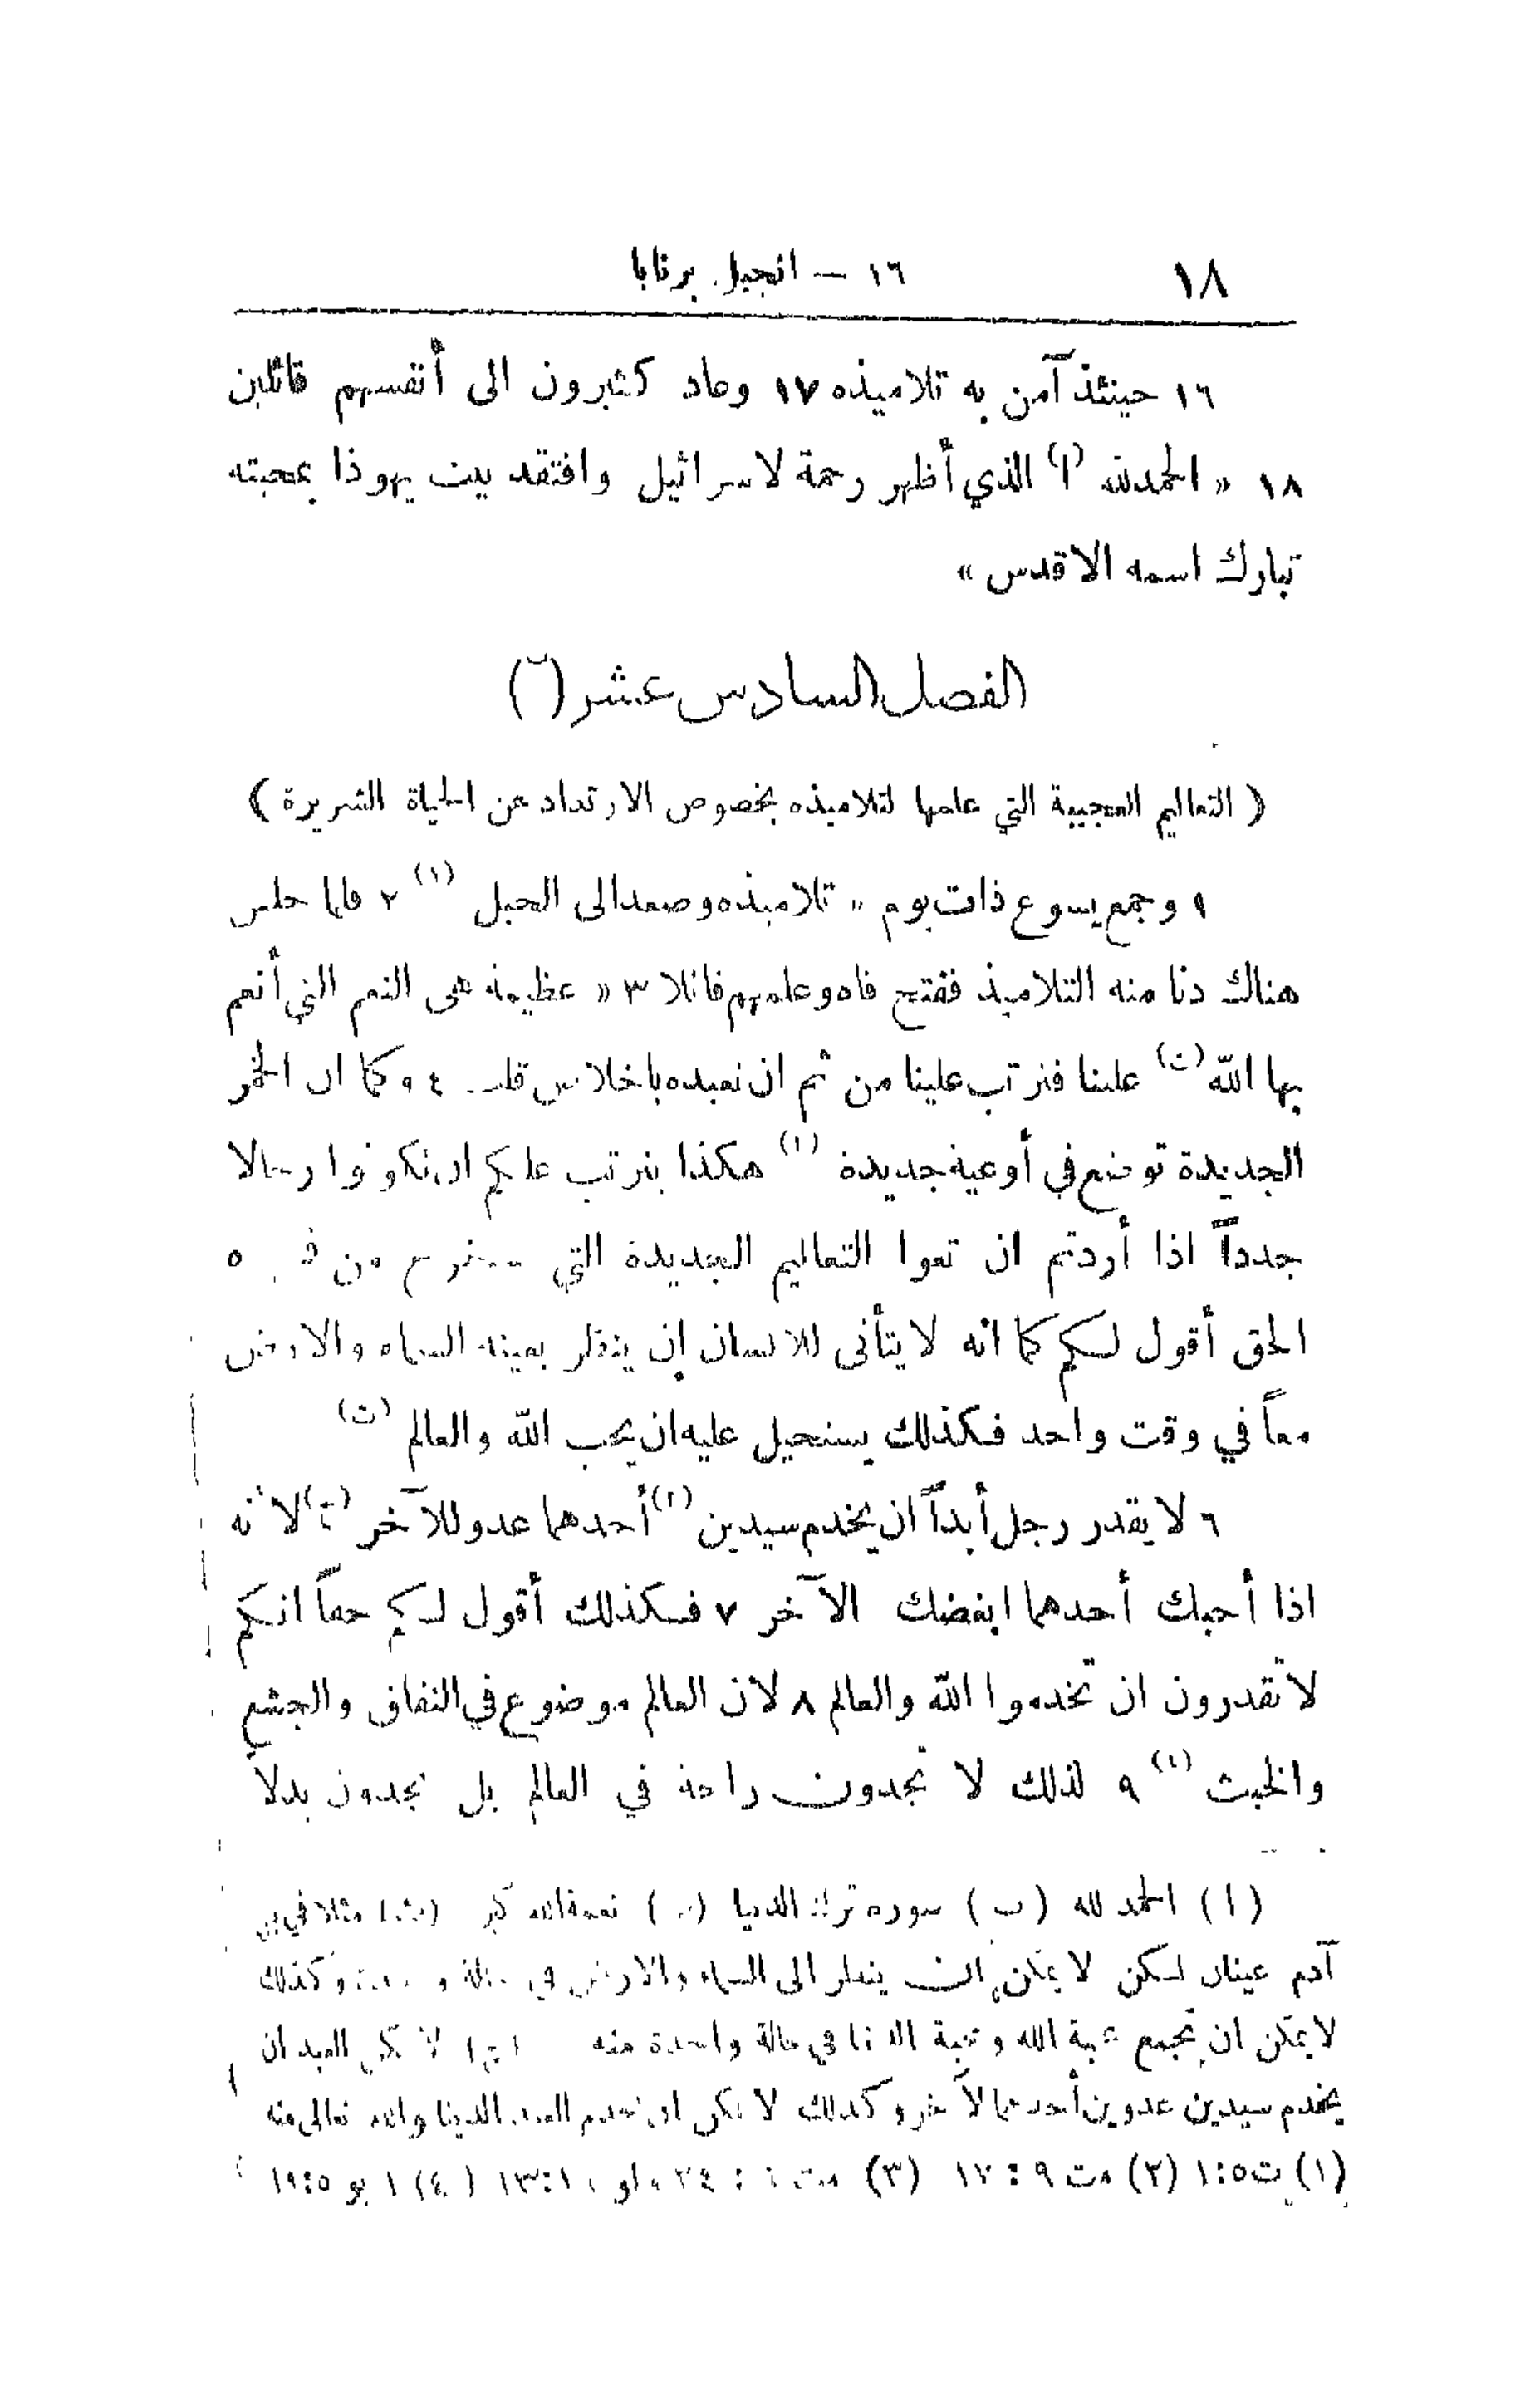 ١٨ ١٦ — انجيل برنابا
١٦ حينئذ آمن به تلاميذه ١٧ وعاد كثيرون الى أنفسهم قائلين
١٨ « الحمد لله (ا) الذي أظهر رحمة لاسرائيل وافتقد بيت يهوذا بمحبته
تبارك اسمه الاقدس »
الفصل السادس عشر (ب)
( التعاليم العجيبة التي علمها لتلاميذه بخصوص الارتداد عن الحياة الشريرة )
١ وجمع يسوع ذات يوم « تلاميذه وصعد الى الجبل (١) ٢ فلما جلس
هناك دنا منه التلاميذ ففتح فاه وعلمهم قائلا ٣ « عظيمة هي النعم التي أنعم
بها الله (ت) علينا فترتب علينا من ثم ان نعبده باخلاص ٤ وكما ان الخمر
الجديدة توضع في أوعية جديدة هكذا يترتب عليكم ان تكونوا رجالا
جدداً اذا أردتم ان تعوا التعاليم الجديدة التي من ٥
الحق أقول لكم كما انه لا يتأتى للانسان ان ينظر بعينه السماء والارض
معاً في وقت واحد فكذلك يستحيل عليه ان يحب الله والعالم (ث)
٦ لا يقدر رجل أبداً ان يخدم سيدين أحدهما عدو للآخر لانه
اذا أحبك أحدهما ابغضك الآخر ٧ فكذلك أقول لكم حقاً انكم
لا تقدرون ان تخدموا الله والعالم ٨ لان العالم موضوع في النفاق والجشع
والخبث (٤) ٩ لذلك لا تجدون راحة في العالم بل تجدون بدلا
(ا) الحمد لله (ب) سورة ترك الدنيا نعمة الله (ث) مثلا في
آدم عينان لكن لا يمكن ان ينظر الى السماء والارض في حالة وكذلك
لا يمكن ان يجمع محبة الله ومحبة الدنيا في حالة واحدة منه لا يمكن العبد ان
يخدم سيدين عدوين أحدهما لآخر وكذلك لا يمكن ان يخدم العبد الدنيا والله تعالى منه
(١) مت ٥:١ (٢) مت ٩:١٧ (٣) مت : ٢٤ (٤) ١ يو ١٩:٥